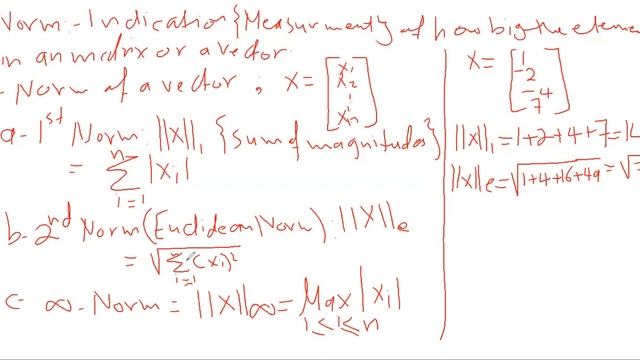 Norm:- Indication {Measurment} of how big the eleme
in an matrix or a vector.
- Norm of a vector ; X = [x₁ x₂ ⋮ xₙ]
a- 1st Norm: ||X||₁ {sum of magnitudes}
= Σᵢ₌₁ⁿ |xᵢ|
b- 2nd Norm (Euclidean Norm): ||X||e
= √(Σᵢ₌₁ⁿ (xᵢ)²)
c- ∞-Norm = ||X||∞ = Max |xᵢ|
1≤i≤n
X = [1 -2 -4 7]
||X||₁ = 1+2+4+7 = 14
||X||e = √(1+4+16+49) = √7